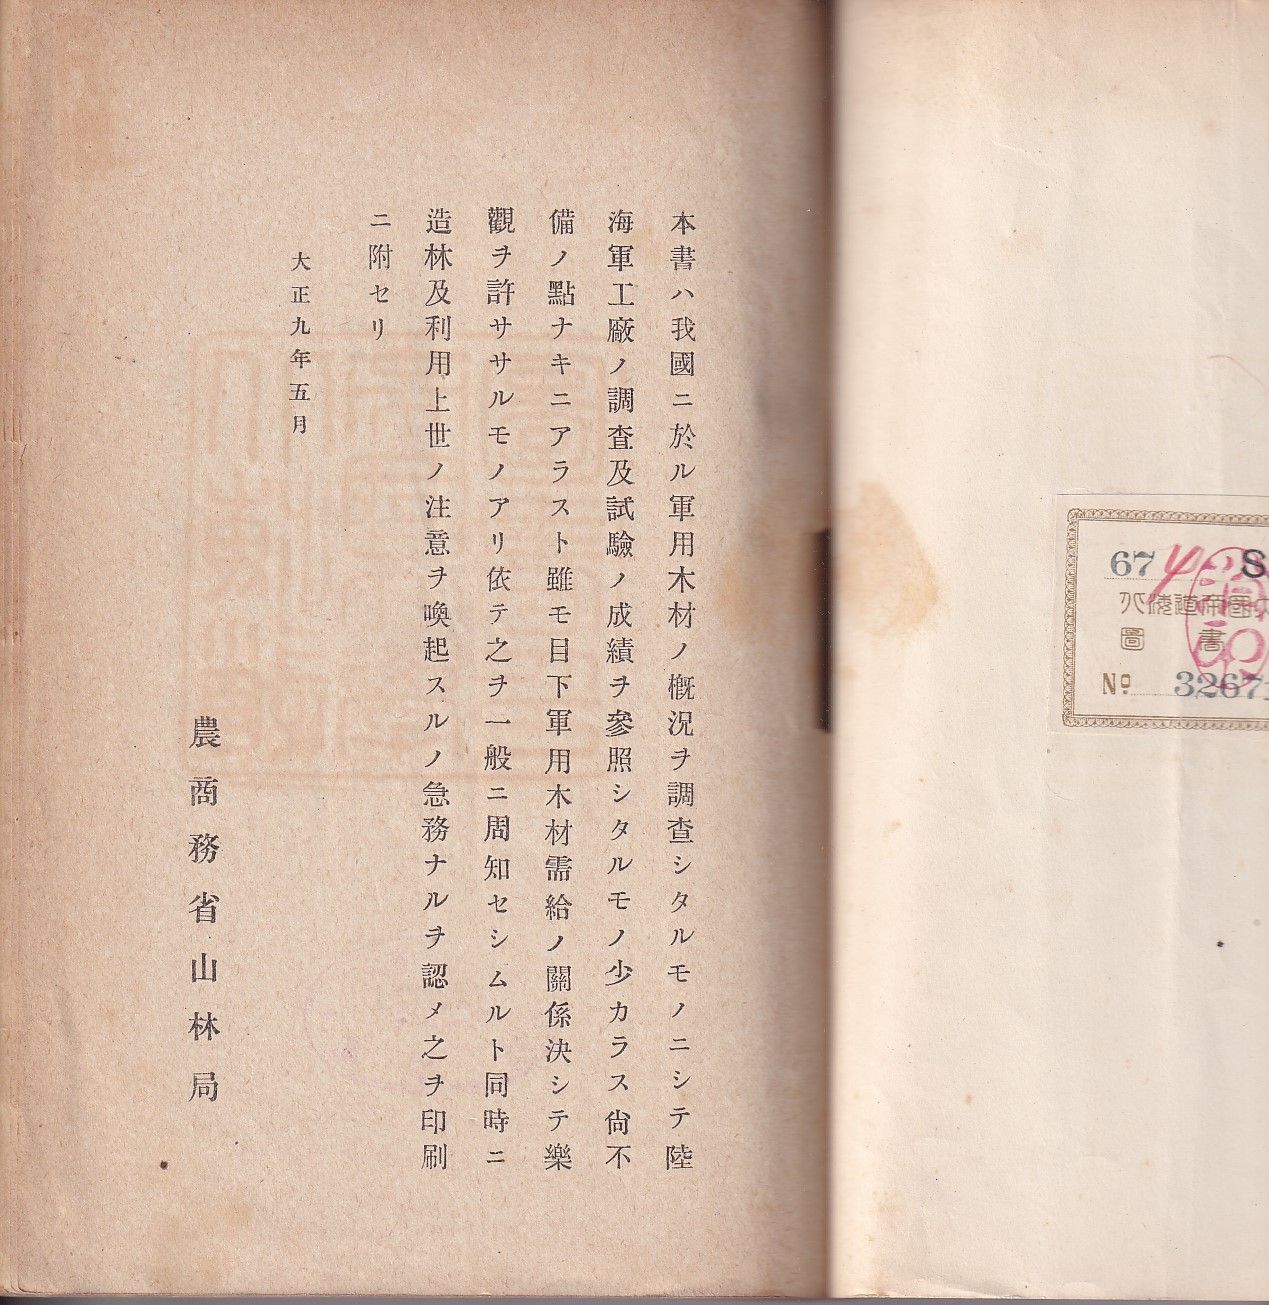 本書ハ我國ニ於ル軍用木材ノ槪況ヲ調査シタルモノニシテ陸
海軍工廠ノ調査及試驗ノ成績ヲ參照シタルモノ少カラス尙不
備ノ點ナキニアラスト雖モ目下軍用木材需給ノ關係決シテ樂
觀ヲ許ササルモノアリ依テ之ヲ一般ニ周知セシムルト同時ニ
造林及利用上世ノ注意ヲ喚起スルノ急務ナルヲ認メ之ヲ印刷
ニ附セリ
大正九年五月
農商務省山林局
674 S
北海道帝國大
圖書
No. 32671